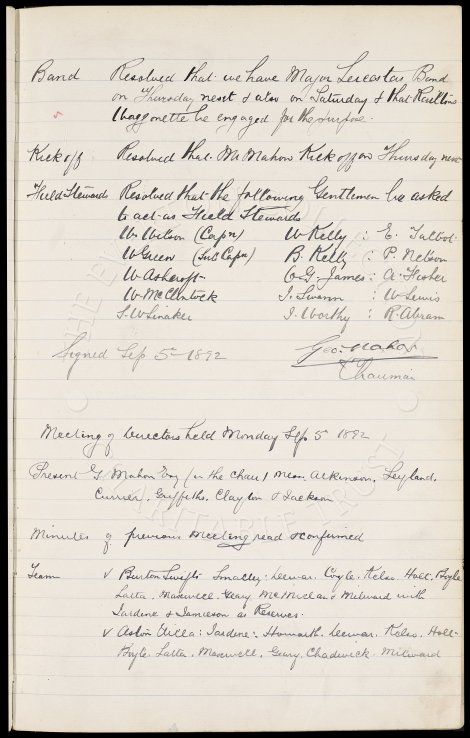 Band Resolved that we have Major Leicasters Band
on Thursday next & also on Saturday & that Raillton's
Waggonette be engaged for the purpose.
Kick off Resolved that Mr Mahon Kick off on Thursday next
Field Stewards Resolved that the following Gentlemen be asked
to act as Field Stewards
W. Wilson (Capn) W Kelly : E. Talbot
W Green (Sub Capn) B. Kelly : P. Nelson
W. Ashcroft C. G. James : A. Fisher
W. McClintock J. Swann : W Lewis
S. W Linaker J. Worthy : R Abram
Signed Sep 5th 1892 Geo: Mahon
Chairman
Meeting of Directors held Monday Sep 5 1892
Present G. Mahon Esq (in the chair) Messrs. Atkinson, Leyland,
Currier, Griffiths, Clayton & Jackson
Minutes of previous meeting read & confirmed
Team v Burton Swifts Smalley: Dewar. Coyle. Kelso. Holt. Boyle
Latta. Maxwell. Geary. McMillan & Milward with
Jardine & Jamieson as Reserves.
v Aston Villa: Jardine: Howarth. Dewar. Kelso. Holt-
Boyle. Latta. Maxwell. Geary. Chadwick. Milward